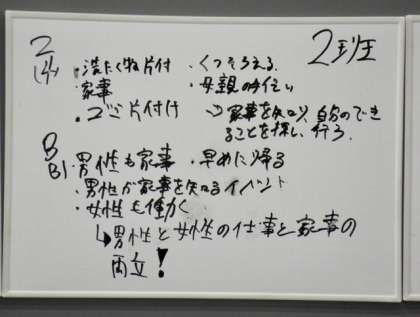 2 2班
・洗たく物片付 ・くつそろえる
・家事 ・母親の手伝い
・ゴミ片付け → 家事を知り、自分のでき
ることを探し、行う。
B
B1・男性も家事 ・早めに帰る
・男性が家事を知るイベント
・女性も働く
↳男性と女性の仕事と家事の
両立!